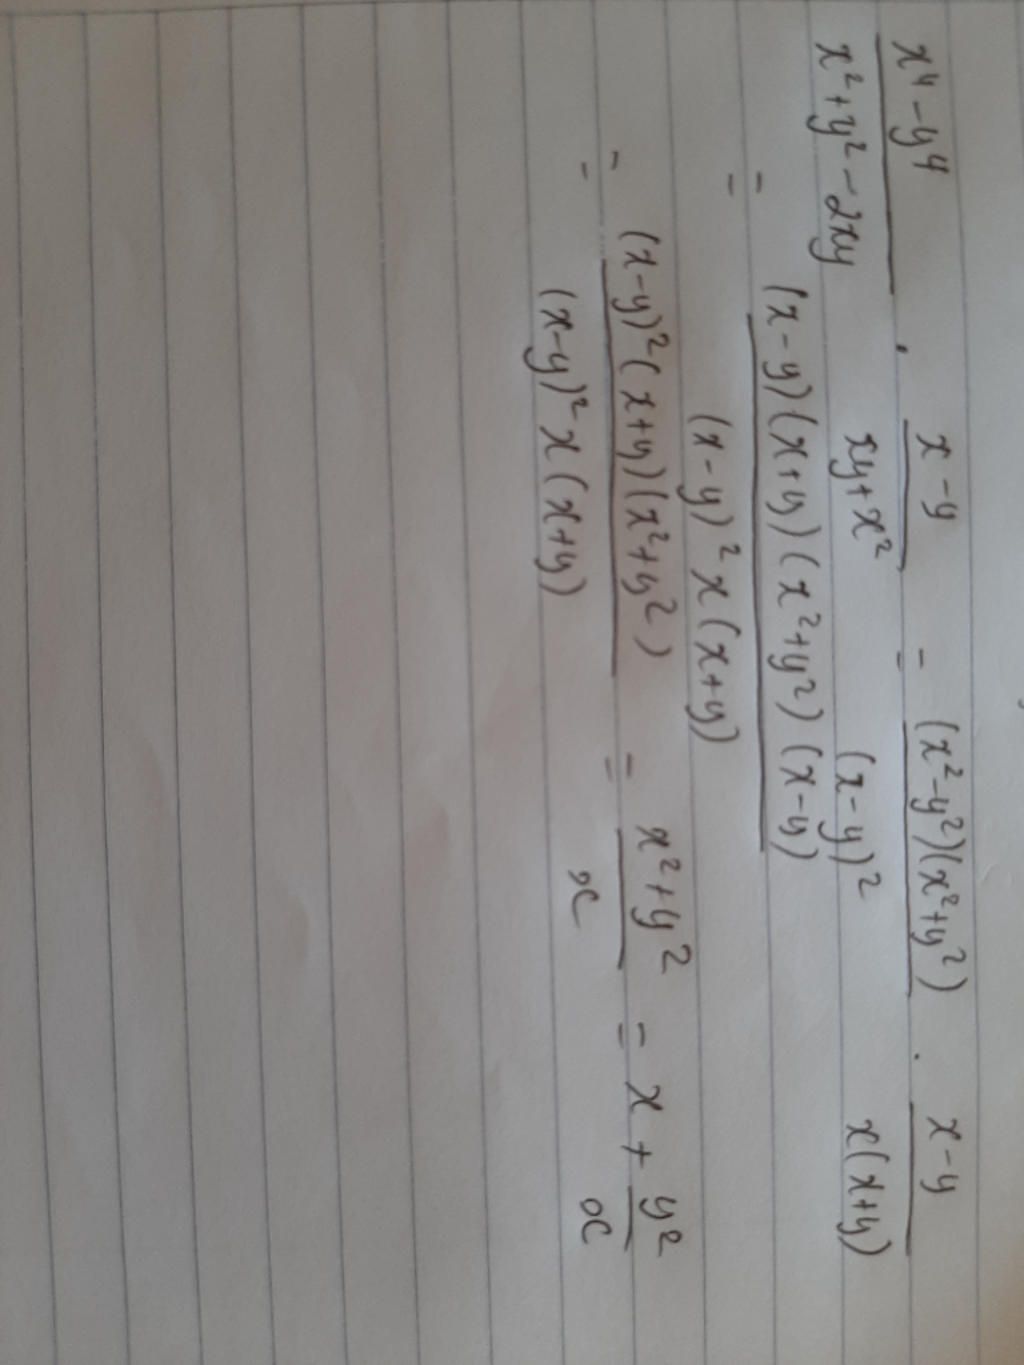 x⁴-y⁴/x²+y²-2xy . x-y/xy+x² = (x²-y²)(x²+y²)/(x-y)² . x-y/x(x+y)
= (x-y)(x+y)(x²+y²)(x-y)/(x-y)²x(x+y)
= (x-y)²(x+y)(x²+y²)/(x-y)²x(x+y) = x²+y²/x = x + y²/x